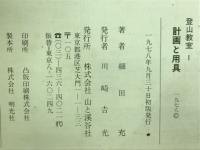 登山教室Ⅰ
計画と用具
一九七八©
一九七八年九月三十日初版発行
著者 細田充
発行者 川崎吉光
発行所 株式会社 山と溪谷社
〒一〇五
東京都港区芝大門一ー一ー三三
☎(〇三)ー四三六ー四〇二一(代)
振替ー東京八ー六〇二四九
印刷所 凸版印刷株式会社
製本所 株式会社 明光社